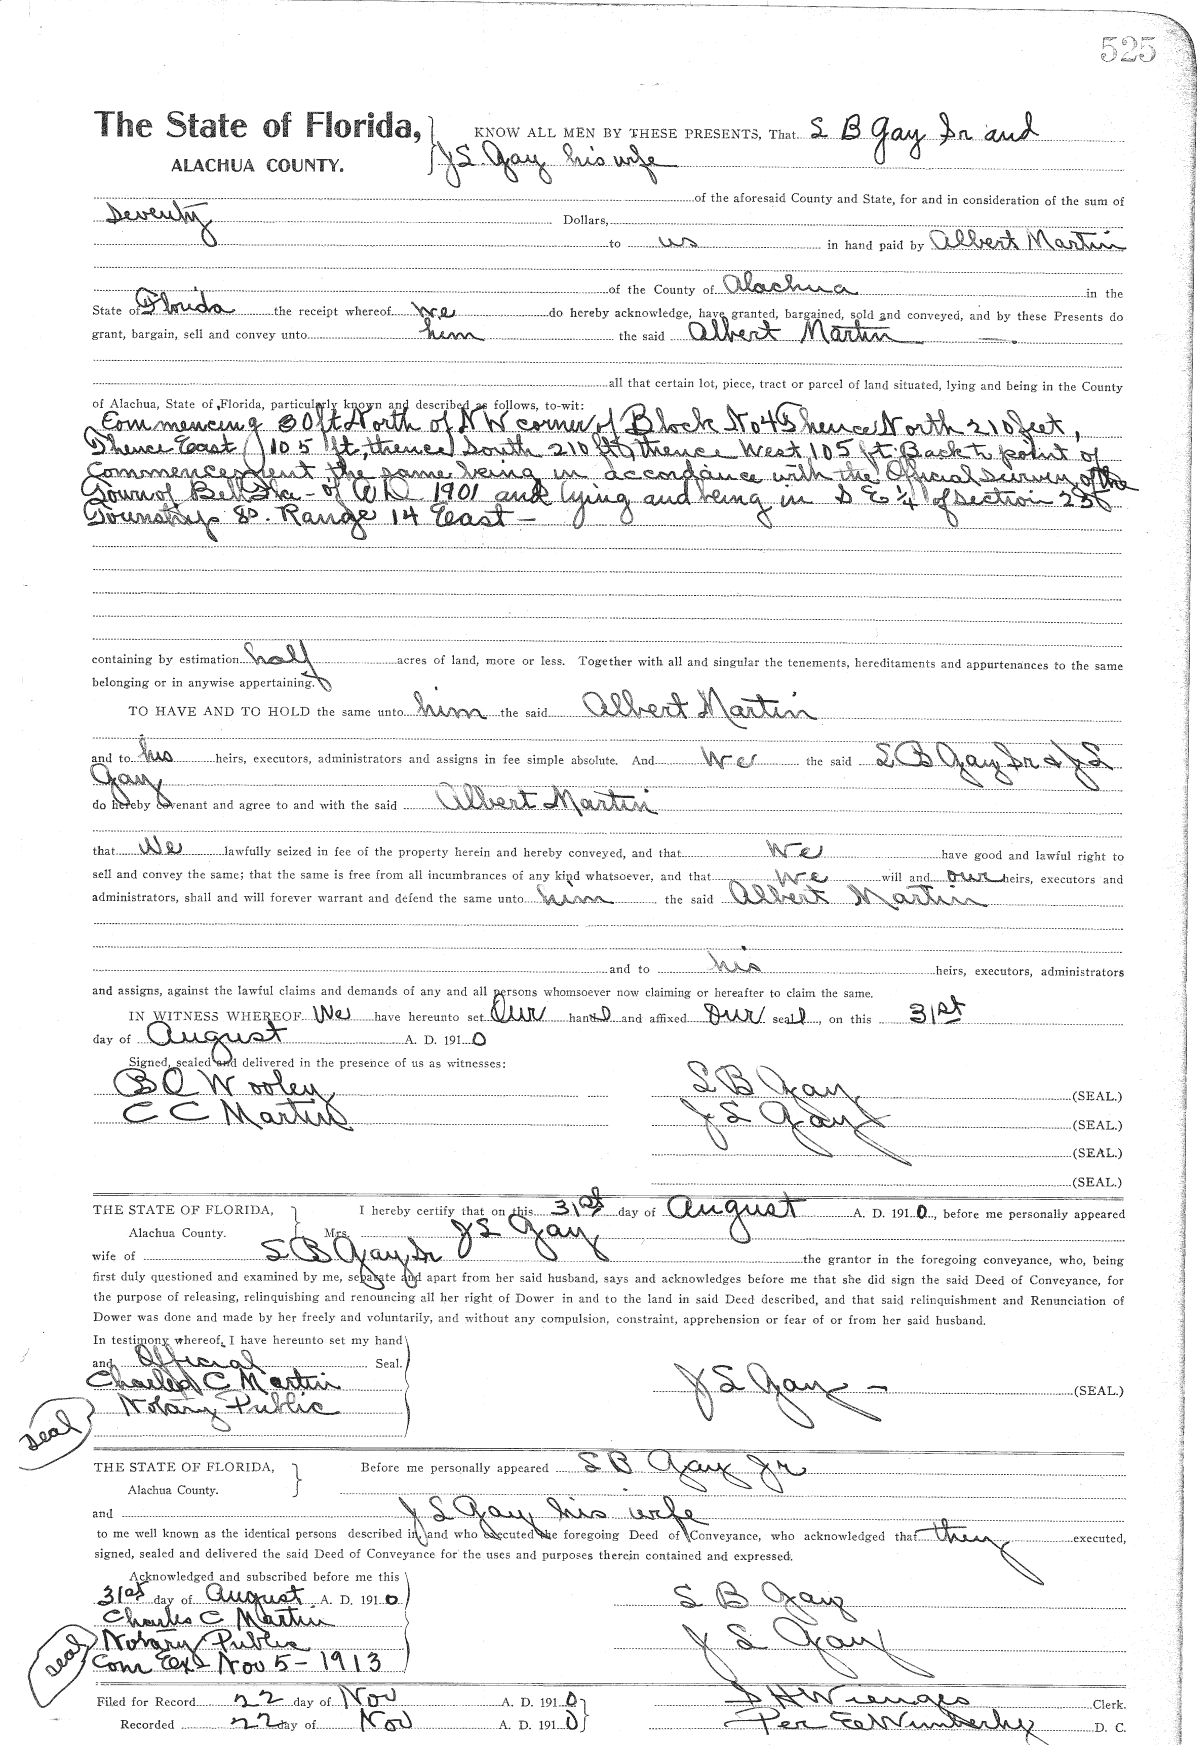 525
The State of Florida, KNOW ALL MEN BY THESE PRESENTS, That S B Gay Sr and
ALACHUA COUNTY. J S Gay his wife
of the aforesaid County and State, for and in consideration of the sum of
Seventy Dollars,
to us in hand paid by Albert Martin
of the County of Alachua in the
State of Florida the receipt whereof we do hereby acknowledge, have granted, bargained, sold and conveyed, and by these Presents do
grant, bargain, sell and convey unto him the said Albert Martin
all that certain lot, piece, tract or parcel of land situated, lying and being in the County
of Alachua, State of Florida, particularly known and described as follows, to-wit:
Commencing ft North of NW corner of Block No 4 Thence North 210 feet,
Thence East 105 ft, thence South 210 ft, thence West 105 ft Back to point of
Commencement the same being in accordance with the Official Survey of the
Town of Bell Fla - of 1901 and lying and being in S E ¼ of Section
Township 8S. Range 14 East -
containing by estimation half acres of land, more or less. Together with all and singular the tenements, hereditaments and appurtenances to the same
belonging or in anywise appertaining.
TO HAVE AND TO HOLD the same unto him the said Albert Martin
and to his heirs, executors, administrators and assigns in fee simple absolute. And We the said S B Gay Sr & J S
Gay
do hereby covenant and agree to and with the said Albert Martin
that We lawfully seized in fee of the property herein and hereby conveyed, and that We have good and lawful right to
sell and convey the same; that the same is free from all incumbrances of any kind whatsoever, and that We will and our heirs, executors and
administrators, shall and will forever warrant and defend the same unto him the said Albert Martin
and to his heirs, executors, administrators
and assigns, against the lawful claims and demands of any and all persons whomsoever now claiming or hereafter to claim the same.
IN WITNESS WHEREOF We have hereunto set Our hand and affixed Our seal, on this 31st
day of August A. D. 1910
Signed, sealed and delivered in the presence of us as witnesses:
B O Wooley S B Gay (SEAL.)
C C Martin J S Gay (SEAL.)
(SEAL.)
(SEAL.)
THE STATE OF FLORIDA, I hereby certify that on this 31st day of August A. D. 1910, before me personally appeared
Alachua County. Mrs. J S Gay
wife of S B Gay Sr the grantor in the foregoing conveyance, who, being
first duly questioned and examined by me, separate and apart from her said husband, says and acknowledges before me that she did sign the said Deed of Conveyance, for
the purpose of releasing, relinquishing and renouncing all her right of Dower in and to the land in said Deed described, and that said relinquishment and Renunciation of
Dower was done and made by her freely and voluntarily, and without any compulsion, constraint, apprehension or fear of or from her said husband.
In testimony whereof, I have hereunto set my hand
and Official Seal.
Charles C Martin J S Gay - (SEAL.)
Notary Public
Seal
THE STATE OF FLORIDA, Before me personally appeared S B Gay Jr
Alachua County.
and J S Gay his wife
to me well known as the identical persons described in, and who executed the foregoing Deed of Conveyance, who acknowledged that they executed,
signed, sealed and delivered the said Deed of Conveyance for the uses and purposes therein contained and expressed.
Acknowledged and subscribed before me this
31st day of August A. D. 1910 S B Gay
Charles C Martin
Notary Public J S Gay
Seal
Com Exp Nov 5 - 1913
Filed for Record 22 day of Nov A. D. 1910 S H Wienges Clerk.
Recorded 22 day of Nov A. D. 1910 Per E Wimberly D. C.